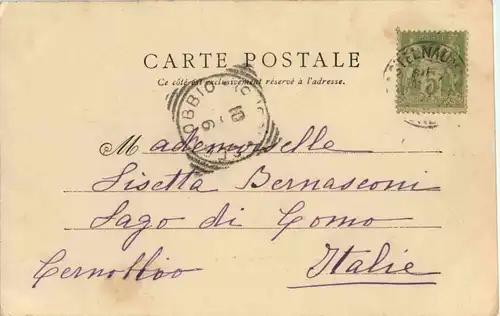 CARTE POSTALE
Ce côté est exclusivement réservé à l'adresse.
Mademoiselle
Lisetta Bernasconi
Lago di Como
Cernobbio Italie